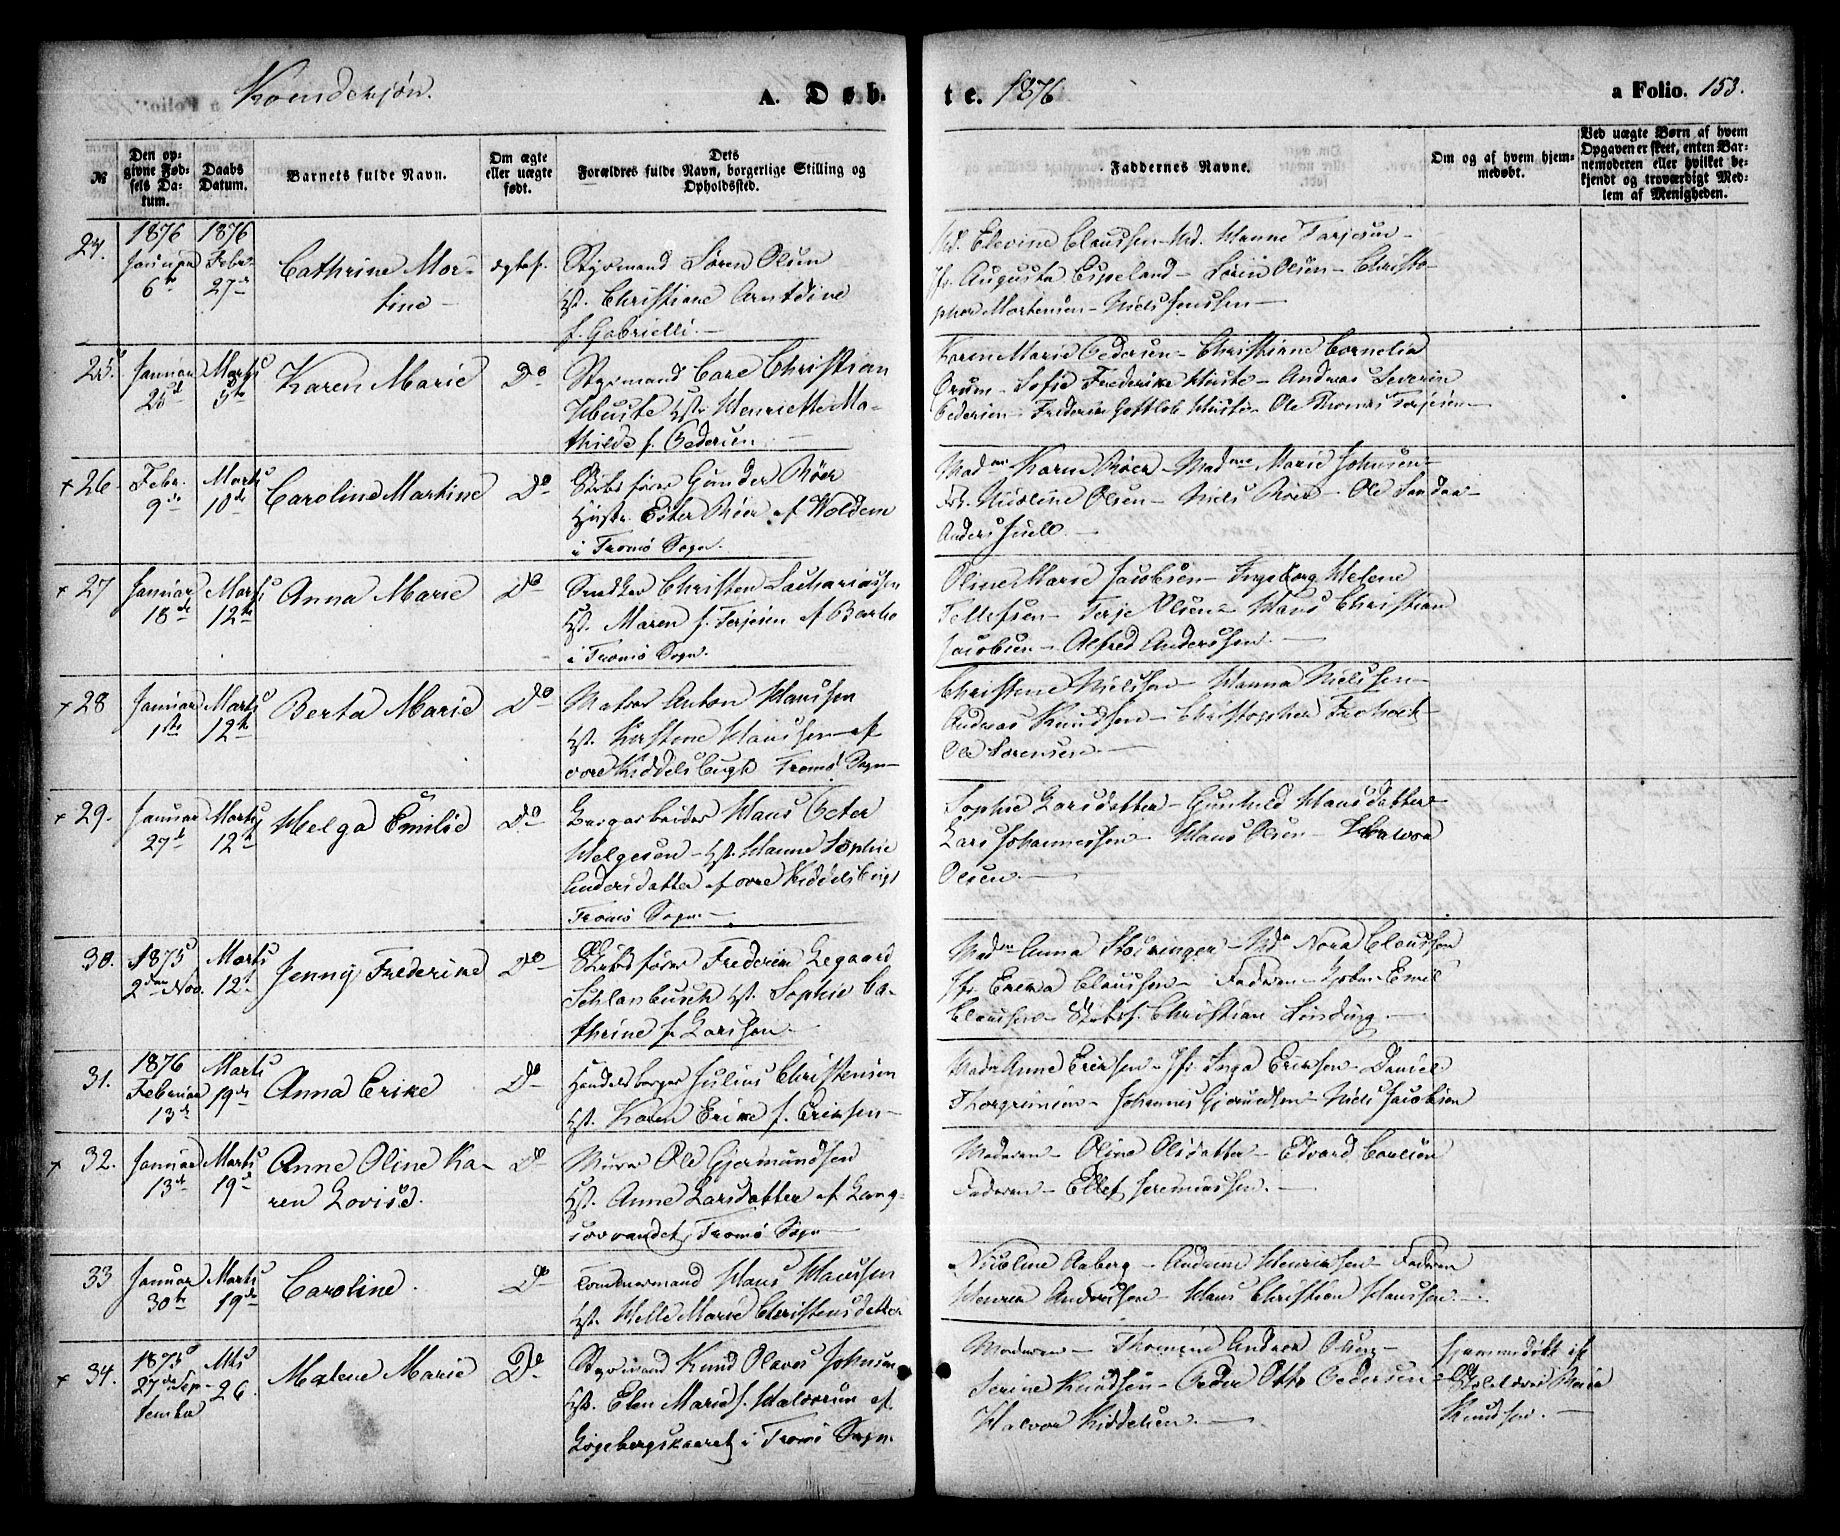 Kvindekjøn.
A. Døb-
te. 1876
a Folio. 153.
№
Den op-
givne Fød-
sels Da-
tum.
Daabs
Datum.
Barnets fulde Navn.
Om ægte
eller uægte
født.
Dets
Forældres fulde Navn, borgerlige Stilling og
Opholdssted.
Faddernes Navne.
Om og af hvem hjem-
medøbt.
Ved uægte Børn af hvem
Opgaven er skeet, enten Bar-
nemoderen eller hvilket be-
kjendt og troværdigt Med-
lem af Menigheden.
24. 1876 Januar 6te
1876 Febr. 27de
Cathrine Mor-
tine
ægtef.
Styrmand Søren Olsen
Hst. Christiane Arntdine
f. Gabrielli.
Md. Elevine Claussen Md. Hanne Terjesen
Jfr. Augusta Espeland Søren Olsen Christo-
pher Mortensen Niels Jenssen
25. Januar
Marts 5te
Karen Marie
Do
Styrmand Care Christian
Huste Hstr. Henriette Ma-
thilde f. Pedersen
Karen Marie Pedersen Christiane Cornelia
Ørum Sofie Frederike Huste Andreas Severin
Pedersen Frederik Gottlob Huste Ole Thomas Terjesen
× 26. Febr. 9de
Marts 10de
Caroline Martine
Do
Skibsfører Gunder Røer
Hustr. Ester Røer af Wolden
i Tromø Sogn.
Madme Karen Røer Madme Marie Johnsen
Frk. Nicoline Olsen Niels Røer Ole Sandaa
Anders Juell.
× 27 Januar 18de
Marts 12te
Anna Marie
Do
Snedker Christen Zachariassen
Hst. Maren f. Terjesen af Barbo
i Tromø Sogn.
Oline Marie Jacobsen Ingeborg Helene
Tellefsen Terje Olsen Hans Christian
Jacobsen Alfred Anderssen.
× 28 Januar 1ste
Marts 12te
Berta Marie
Do
Matros Anton Hanssen
Hst. Kirstene Hanssen af
øvre Kiddelsbugt Tromø Sogn
Christene Nielsen Hanna Nielssen
Andreas Knudsen Christopher
Ole Sørensen
× 29. Januar 27d
Marts 12te
Helga Emilie
Do
Bergarbeider Hans Peter
Helgesen Hst. Hanne Sophie
Andersdatter af øvre Kiddelsbugt
Tromø Sogn
Sophie Larsdatter Gunhild Hansdatter
Lars Johannessen Hans Olsen Halvor
Olsen
30. 1875 2den Nov.
Marts 12t
Jenny Frederike
Do
Skibsfører Frederik Legaard
Schlanbusch Hst. Sophie Ca-
thrine f. Larssen
Madme Anna Md Nora Claussen
Jfr. Claussen Faderen Emil
Claussen Skibsf. Christian Linding.
31. 1876 Februar 13de
Marts 19de
Anna Erike
Do
Handelsborger Julius Christensen
Hst. Karen Erike f. Eriksen
Mad. Anne Eriksen Jfr. Inga Eriksen Daniel
Thorgrimsen Johannes Gjermundsen Niels Jacobsen
× 32. Januar 13de
Marts 19d
Anne Oline Ka-
ren Lovise.
Do
Murer Ole Gjermundsen
Hst. Anne Larsdatter af Lang-
søvandet, Tromø Sogn
Moderen Oline Olsdatter Edvard Carlsen
Faderen Ellef Jeremiassen.
33 Januar 30te
Marts 19de
Caroline.
Do
Tømmermand Hans Hanssen
Hst. Helle Marie Christensdatter
Nicoline Aaberg Andrine Henriksen Faderen
Henrik Andersen Hans Christian Hanssen.
× 34. 1875 27de Sep-
tember
Mts 26.
Malene Marie
Do
Styrmand Knud Olaves Johnsen
Hst. Elen Marie f. Halvorsen af
Løgebergskaaret i Tromø Sogn.
Moderen Thomine Andrea Olsen
Serine Knudsen Peder Otto Pedersen
Halvor Kiddelsen.
hjemmedøbt af
Marie
Knudsen.